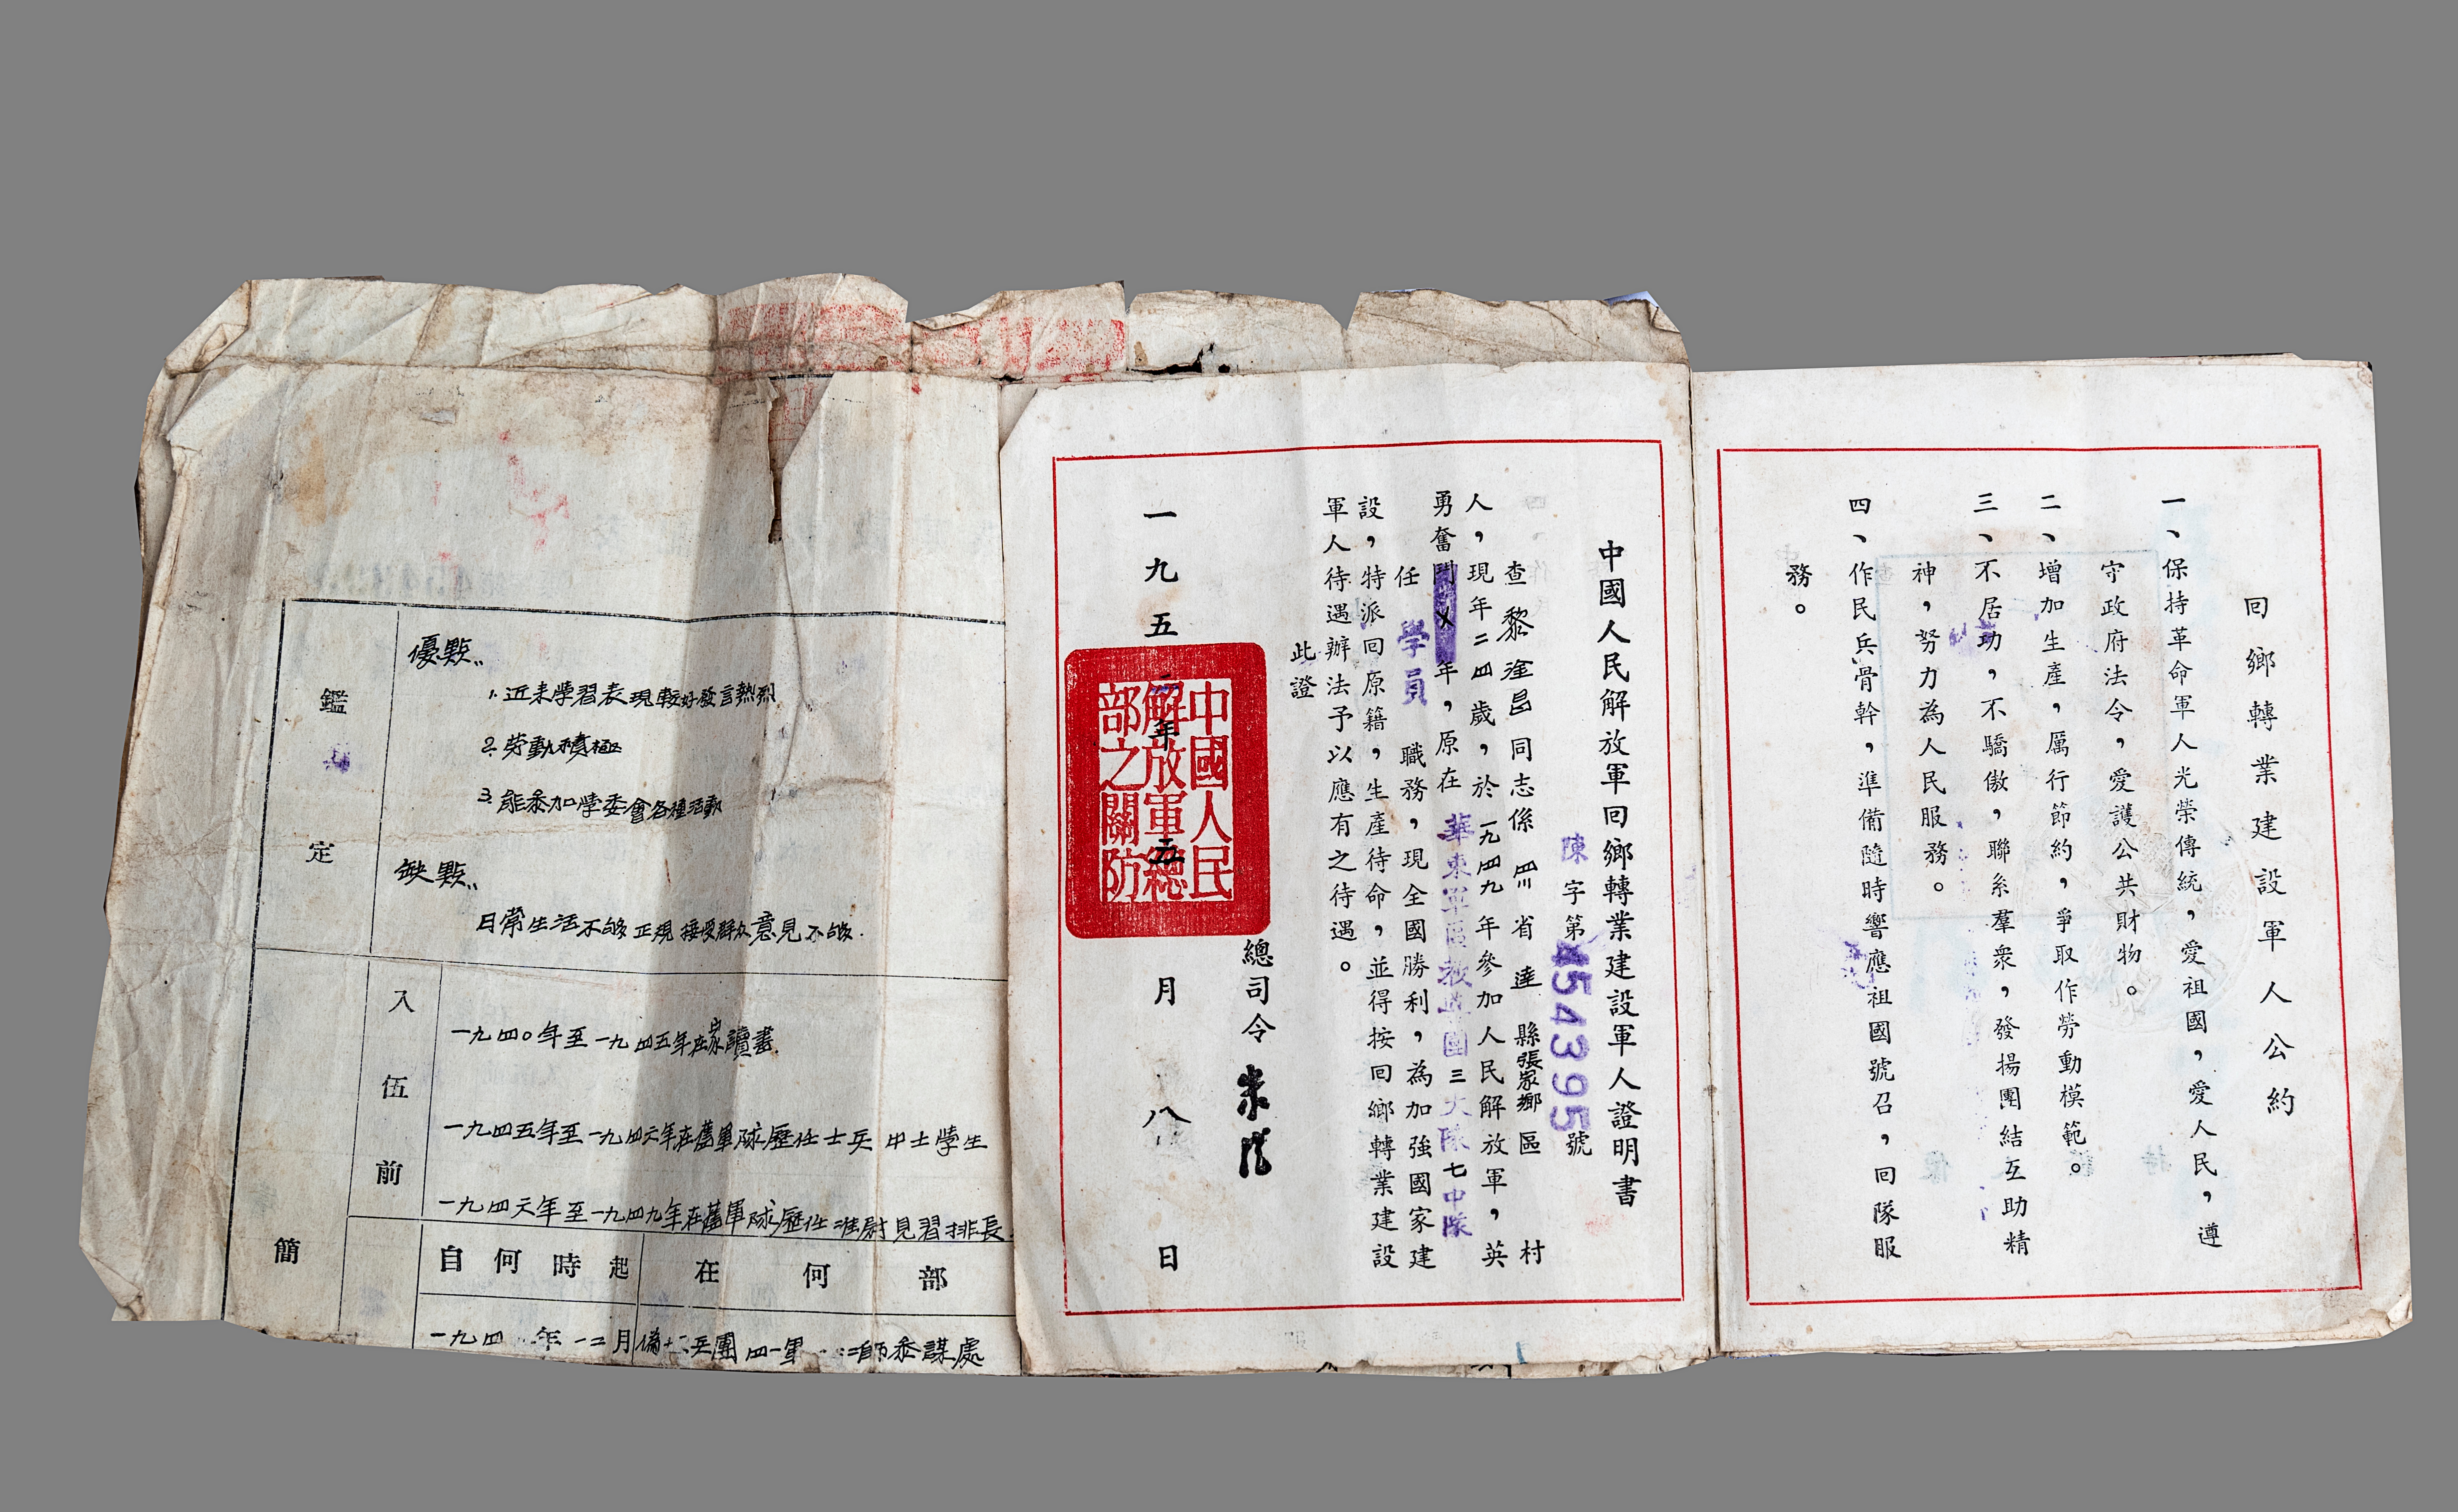 回鄉轉業建設軍人公約
一、保持革命軍人光榮傳統，愛祖國，愛人民，遵
守政府法令，愛護公共財物。
二、增加生產，厲行節約，爭取作勞動模範。
三、不居功，不驕傲，聯系羣衆，發揚團結互助精
神，努力為人民服務。
四、作民兵骨幹，準備隨時響應祖國號召，回隊服
務。
中國人民解放軍回鄉轉業建設軍人證明書
陳字第4543995號
查黎淦昌同志係四川省達縣張家鄉區村
人，現年二四歲，於一九四九年參加人民解放軍，英
勇奮鬥X年，原在華東軍區教導團三大隊七中隊
任學員職務，現全國勝利，為加強國家建
設，特派回原籍，生產待命，並得按回鄉轉業建設
軍人待遇辦法予以應有之待遇。
此證
總司令朱德
一九五二年五月八日
中國人民
解放軍總
部之關防
鑑定
優點
1. 近来學習表現較好發言熱烈
2. 労動積極
3. 能参加學委會各種活動
缺點
日常生活不够正規 接受群众意見不够.
簡
入伍前
一九四〇年至一九四五年在家讀書
一九四五年至一九四六年在舊軍隊歷任士兵 中士學生
一九四六年至一九四九年在舊軍隊歷任准尉見習排長
自何時起 在何部
一九四 年一二月 兵團四一軍 師参謀處